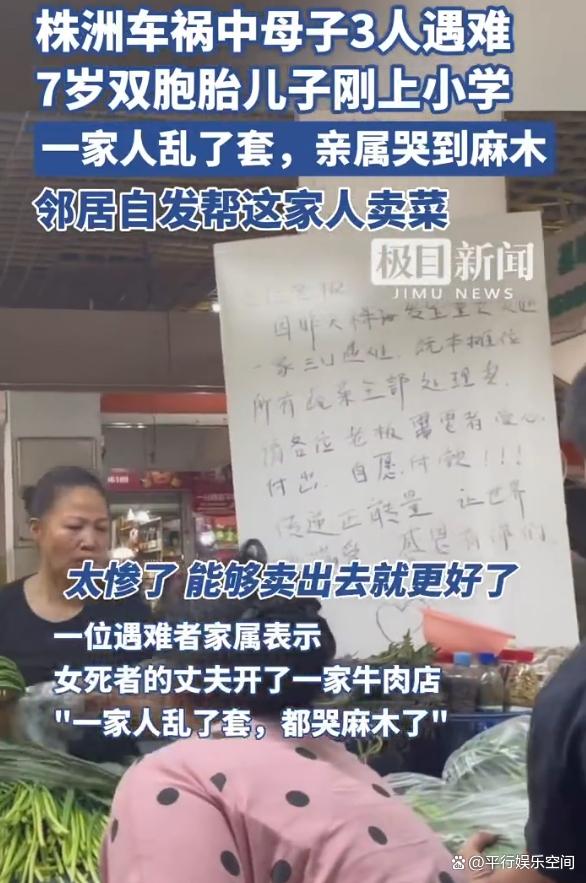 株洲车祸中母子3人遇难
7岁双胞胎儿子刚上小学
一家人乱了套，亲属哭到麻木
邻居自发帮这家人卖菜
极目新闻
JIMU NEWS
因昨天株洲发生重大
一家三口遇难
所有蔬菜全部处理卖
请各位老板 爱心
付出 自愿付款!!!
传递正能量 让世界
感恩有你们
太惨了 能够卖出去就更好了
一位遇难者家属表示
女死者的丈夫开了一家牛肉店
"一家人乱了套，都哭麻木了"
@平行娱乐空间